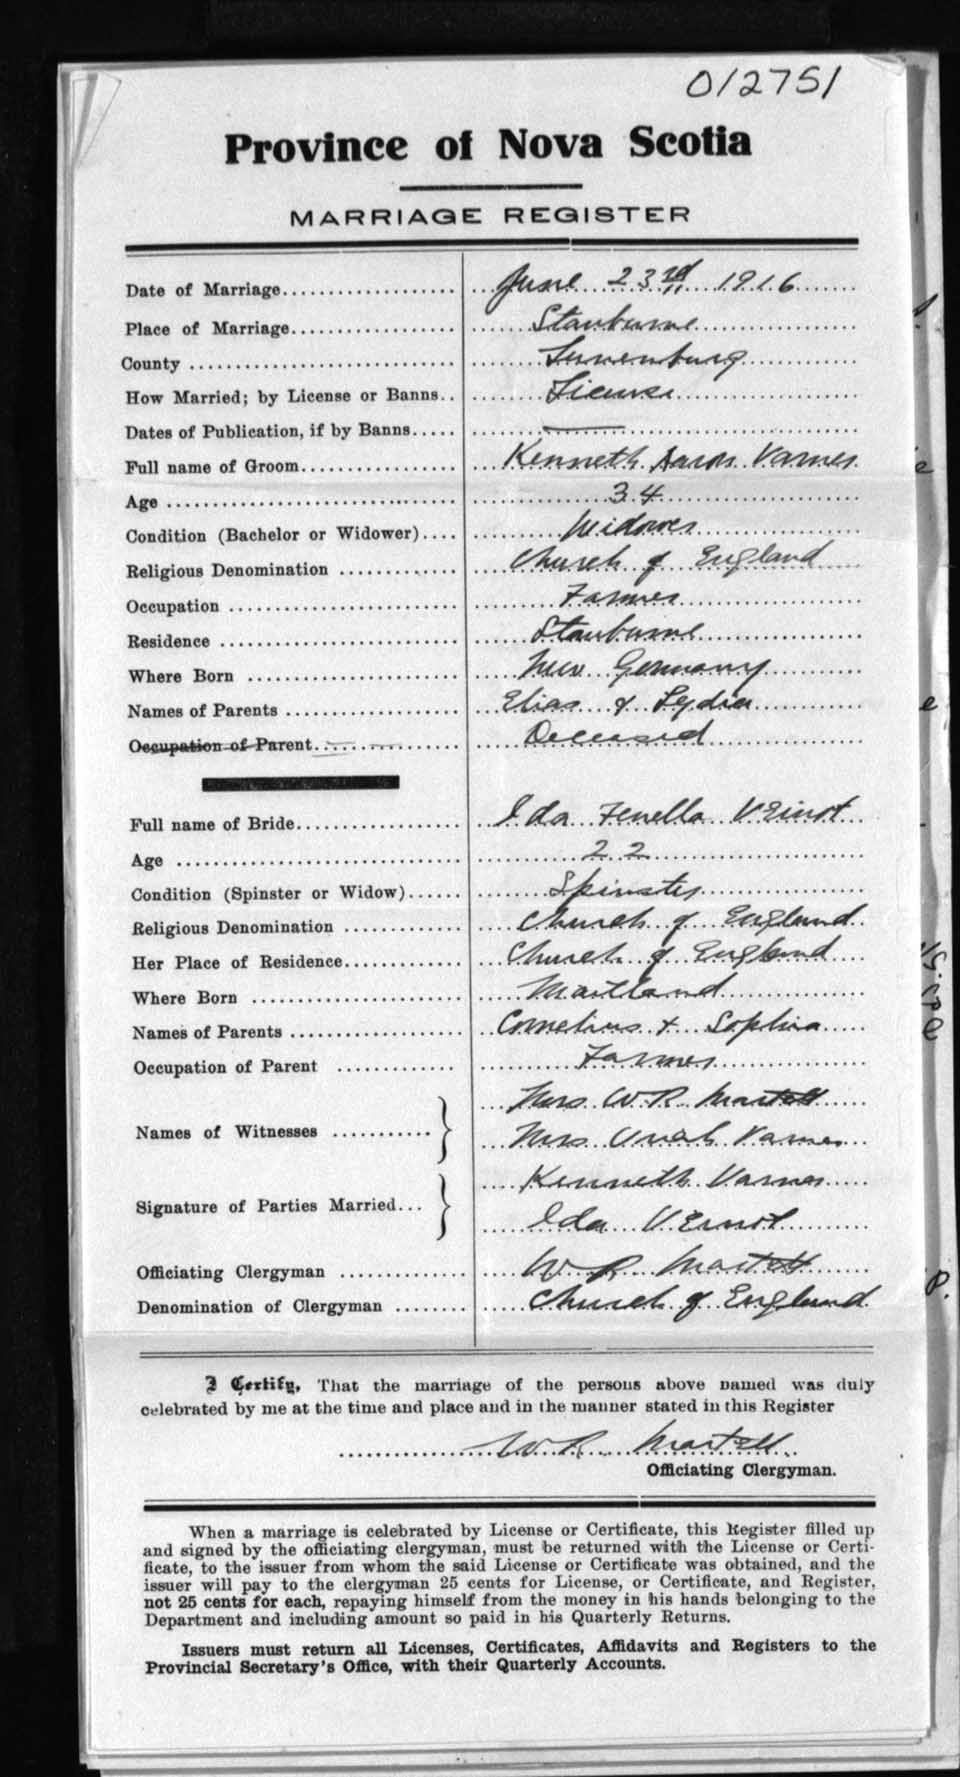 012751
Province of Nova Scotia
MARRIAGE REGISTER
Date of Marriage.................... June 23rd 1916
Place of Marriage.................... Stanburne
County .................... Lunenburg
How Married; by License or Banns.. License
Dates of Publication, if by Banns..... ———
Full name of Groom.................... Kenneth Aaron Varner
Age .................... 34
Condition (Bachelor or Widower).... Widower
Religious Denomination .................... Church of England
Occupation .................... Farmer
Residence .................... Stanburne
Where Born .................... New Germany
Names of Parents .................... Elias & Lydia
Occupation of Parent.................... Deceased
Full name of Bride.................... Ida Fenella VEinot
Age .................... 22
Condition (Spinster or Widow)...... Spinster
Religious Denomination ............. Church of England
Her Place of Residence............. Church of England
Where Born .................... Maitland
Names of Parents .................... Cornelius + Sophia
Occupation of Parent ............. Farmer
Mrs W R Martell
Names of Witnesses ...........} Mrs Uriah Varner
Kenneth Varner
Signature of Parties Married...} Ida VEinot
Officiating Clergyman .............. W R Martell
Denomination of Clergyman ........ Church of England
I Certify, That the marriage of the persons above named was duly
celebrated by me at the time and place and in the manner stated in this Register
W R Martell
Officiating Clergyman.
When a marriage is celebrated by License or Certificate, this Register filled up
and signed by the officiating clergyman, must be returned with the License or Certi-
ficate, to the issuer from whom the said License or Certificate was obtained, and the
issuer will pay to the clergyman 25 cents for License, or Certificate, and Register,
not 25 cents for each, repaying himself from the money in his hands belonging to the
Department and including amount so paid in his Quarterly Returns.
Issuers must return all Licenses, Certificates, Affidavits and Registers to the
Provincial Secretary's Office, with their Quarterly Accounts.